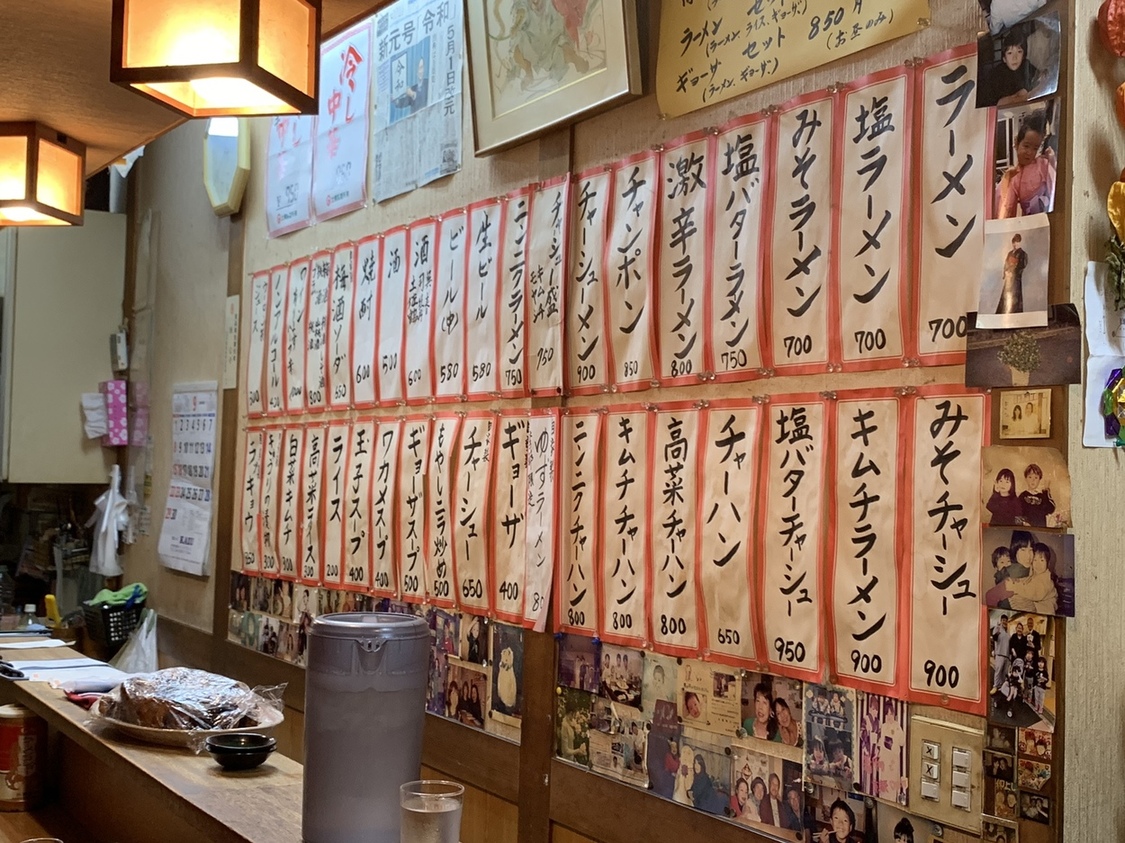 ラーメン セット
(ラーメン、ライス、ギョーザ)
ギョーザ セット 850円
(ラーメン、ギョーザ) (お昼のみ)
冷し中華
新元号 令和
5月1日改元
ラーメン 700
塩ラーメン 700
みそラーメン 700
塩バターラーメン 750
激辛ラーメン 800
チャンポン 850
チャーシューメン 900
チャーシュー盛 950
ニンニクラーメン 750
生ビール 580
ビール(中) 580
酒 600
酒 500
焼酎 600
梅酒ソーダ
ノンアルコール
みそチャーシュー 900
キムチラーメン 900
塩バタチャーシュー 950
チャーハン 650
高菜チャーハン 800
キムチチャーハン 800
ニンニクチャーハン 800
ゆずラーメン
ギョーザ 400
チャーシュー 650
もやしニラ炒め 500
ギョーザスープ 500
ワカメスープ 400
玉子スープ 400
ライス 200
高菜ライス 300
白菜キムチ 300
ラッキョウ